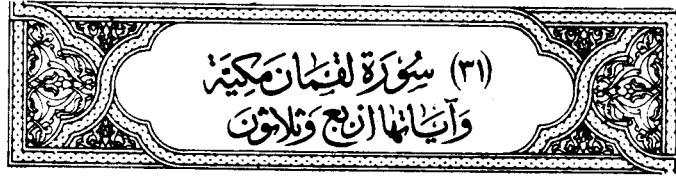 (٣١) سُوْرَة لقمَان مَكِيَّة
وَآيَاتهَا اربَع وَثلاثونَ